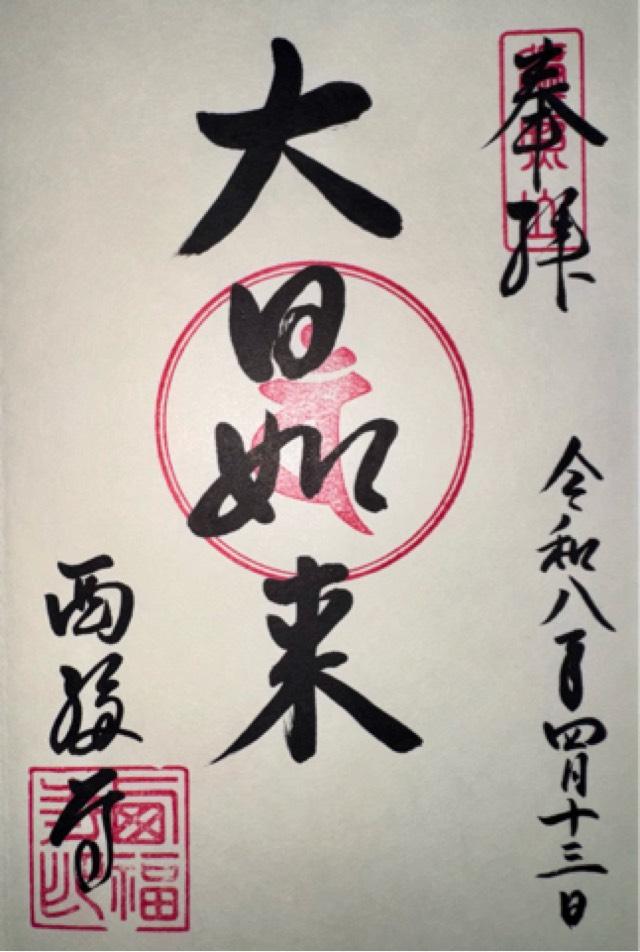 奉拝
令和八年四月十三日
大日如来
西福寺
西福
寺印